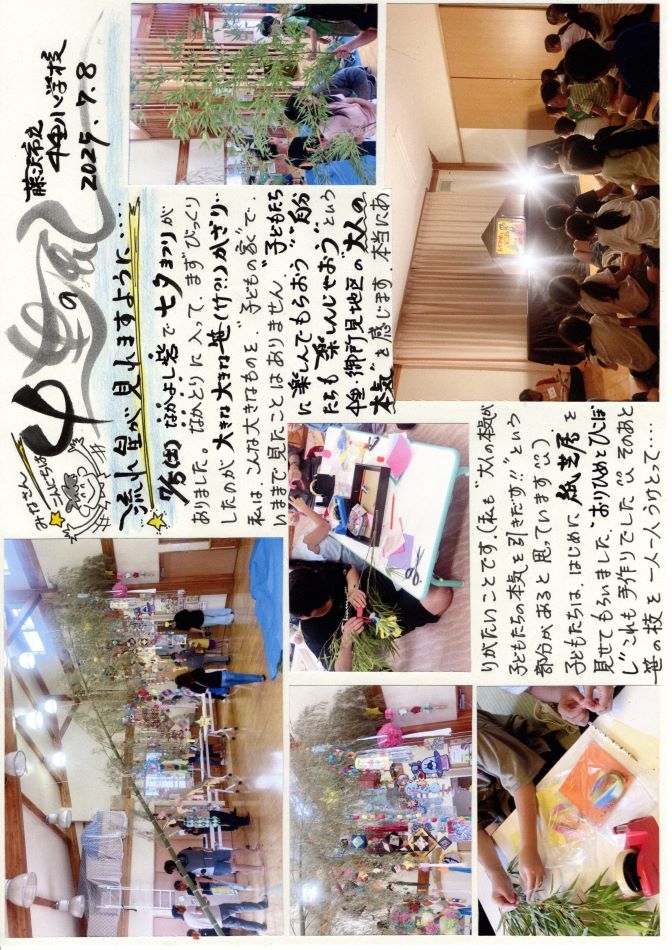 藤沢市立
小学校
2025.7.8
みなさん
こんにちは
の風
流れ星が見れますように‥‥
7/5(土) なかよし砦で 七夕まつりが
ありました。なかとりに入って、まずびっくり
したのが 大きな大きな笹(竹?!)かざり‥
私は、こんな大きなものを、"子どもの家"で、
いままで見たことはありません。"子どもたち
に楽しんでもらおう""自分
たちも楽しんじゃおう"という
御所見地区の"大人の
本気"を感じます。本当にあ
りがたいことです。(私も"大人の本気が
子どもたちの本気を引きだす!!"という
部分があると思っています)
子どもたちは、はじめに、紙芝居を
見せてもらいました。"おりひめとひこぼ
し"これも手作りでした そのあと
笹の枝を一人一人うけとって‥‥